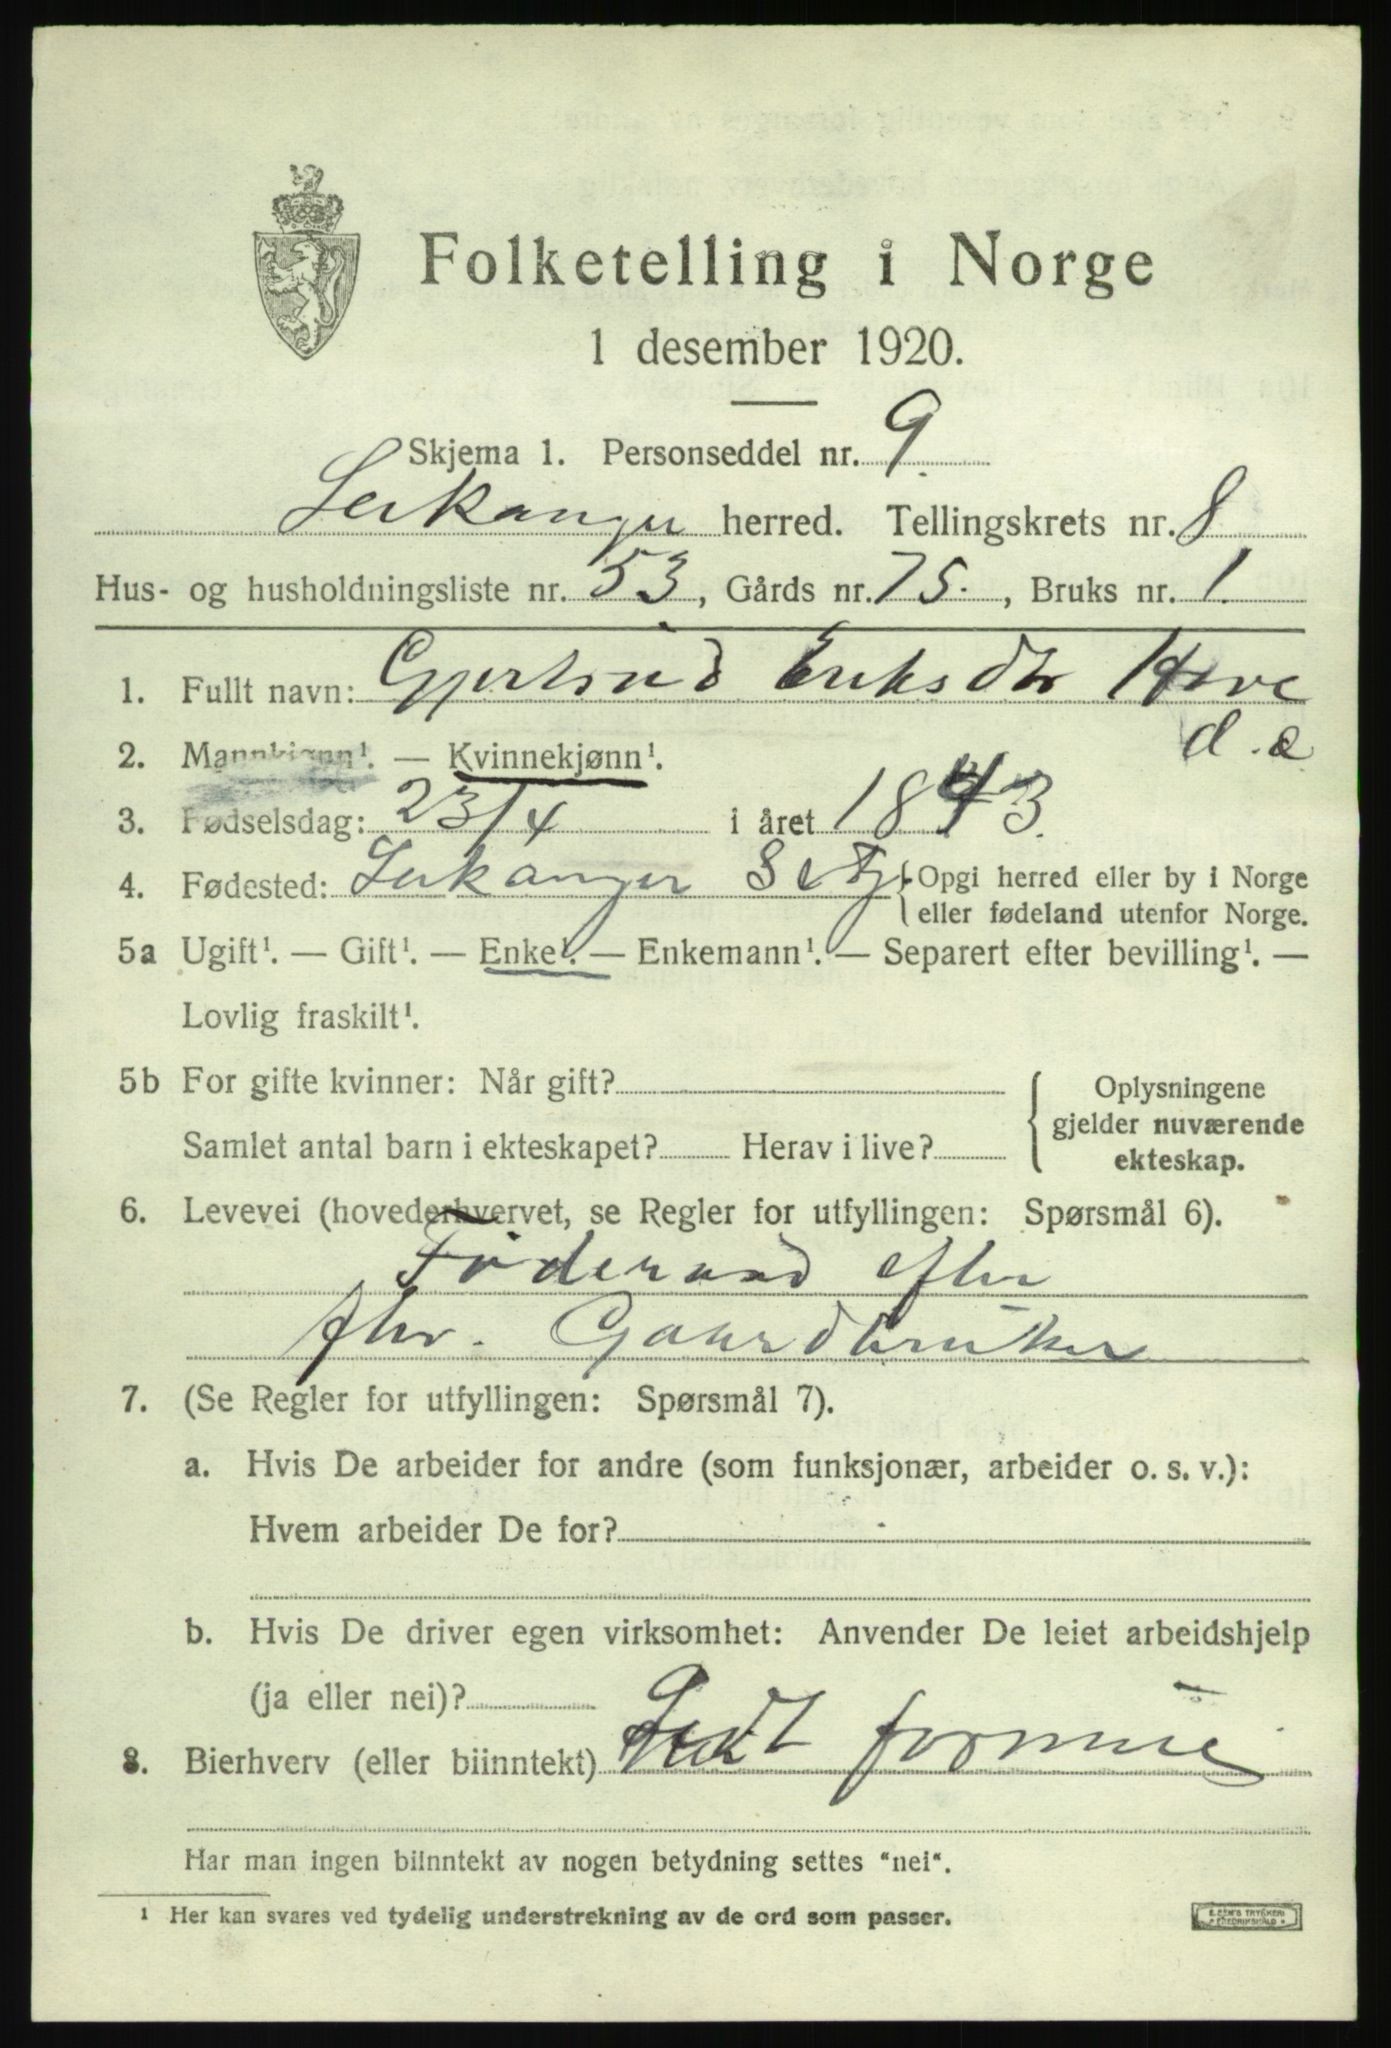 Folketelling i Norge
1 desember 1920.
Skjema 1. Personseddel nr. 9.
Leikanger herred. Tellingskrets nr. 8
Hus- og husholdningsliste nr. 53, Gårds nr. 75., Bruks nr. 1.
1. Fullt navn: Gjertrud Eriksdtr Hove
d. e
2. Mannkjønn¹. — Kvinnekjønn¹.
3. Fødselsdag: 23/4 i året 1843.
4. Fødested: Leikanger {Opgi herred eller by i Norge
eller fødeland utenfor Norge.
5a Ugift¹. — Gift¹. — Enke¹. — Enkemann¹. — Separert efter bevilling¹. —
Lovlig fraskilt¹.
5b For gifte kvinner: Når gift?
Samlet antal barn i ekteskapet? Herav i live?
Oplysningene
gjelder nuværende
ekteskap.
6. Levevei (hovederhvervet, se Regler for utfyllingen: Spørsmål 6).
Føderaad efter
fhv. Gaardbruker
7. (Se Regler for utfyllingen: Spørsmål 7).
a. Hvis De arbeider for andre (som funksjonær, arbeider o. s. v.):
Hvem arbeider De for?
b. Hvis De driver egen virksomhet: Anvender De leiet arbeidshjelp
(ja eller nei)?
8. Bierhverv (eller biinntekt) Lidt formue
Har man ingen biinntekt av nogen betydning settes "nei".
¹ Her kan svares ved tydelig understrekning av de ord som passer.
E. SEM'S TRYKKERI
FREDRIKSHALD